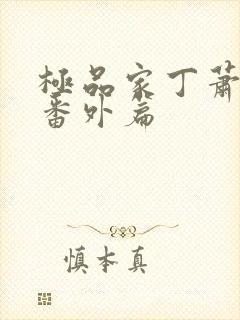 極品家丁蕭
番外篇
慎本真